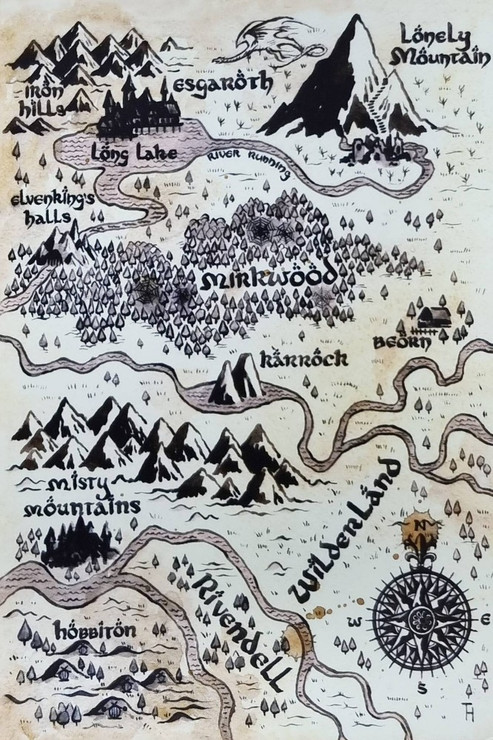 Lönely
Möuntäin
irön
hills
esgaröth
Löng Lake
River Running
elvenking's
halls
Mirkwööd
Beörn
Kärröck
Misty
möuntäins
Wilderländ
N
W
E
S
Rivendell
höbbitön
TH